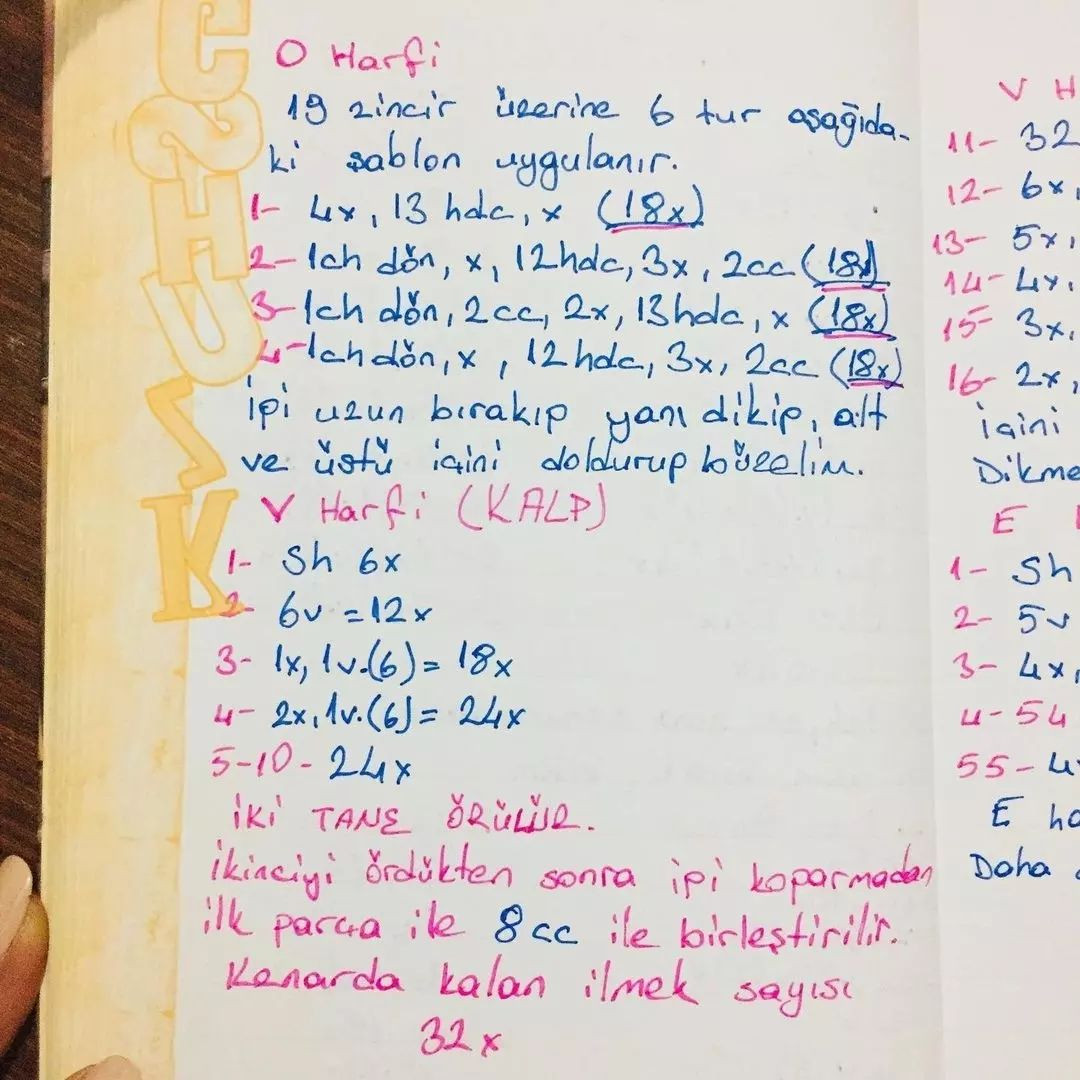 O Harfi
19 zincir üzerine 6 tur aşağıda-
ki şablon uygulanır.
1- 4x, 13 hdc, x (18x)
2- 1ch dön, x, 12hdc, 3x, 2cc (18x)
3- 1ch dön, 2cc, 2x, 13hdc, x (18x)
4- 1ch dön, x, 12hdc, 3x, 2cc (18x)
İpi uzun bırakıp yanı dikip, alt
ve üstü içini doldurup büzelim.
V Harfi (KALP)
1- Sh 6x
2- 6v = 12x
3- 1x, 1v.(6) = 18x
4- 2x, 1v.(6) = 24x
5-10- 24x
İKİ TANE ÖRÜLÜR.
İkinciyi ördükten sonra ipi koparmadan
ilk parça ile 8cc ile birleştirilir.
Kenarda kalan ilmek sayısı
32x
V H
11- 32
12- 6x,
13- 5x,
14- 4x,
15- 3x,
16- 2x,
içini
Dikme
E
1- Sh
2- 5v
3- 4x,
4- 54
55- 4
E ha
Daha
CSHUZK